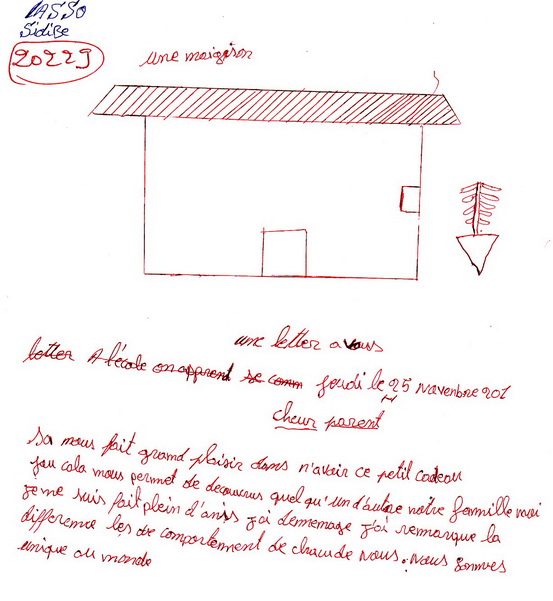 LASSO
Sidibe
20229
une maigison
une letter a vous
letter A l'école on apprent se comm jeudi le 25 Navenbre 201
cheur parent
Sa nous fait grand plaisir dans n'avair ce petit cadeau
cala nous permet de decouvrus quel qu'un d'autre nôtre fammille moi
je me suis fait plein d'amis j'ai demenage j'ai remarque la
difference les de comportement de chacude nous. Nous sommes
unique au monde